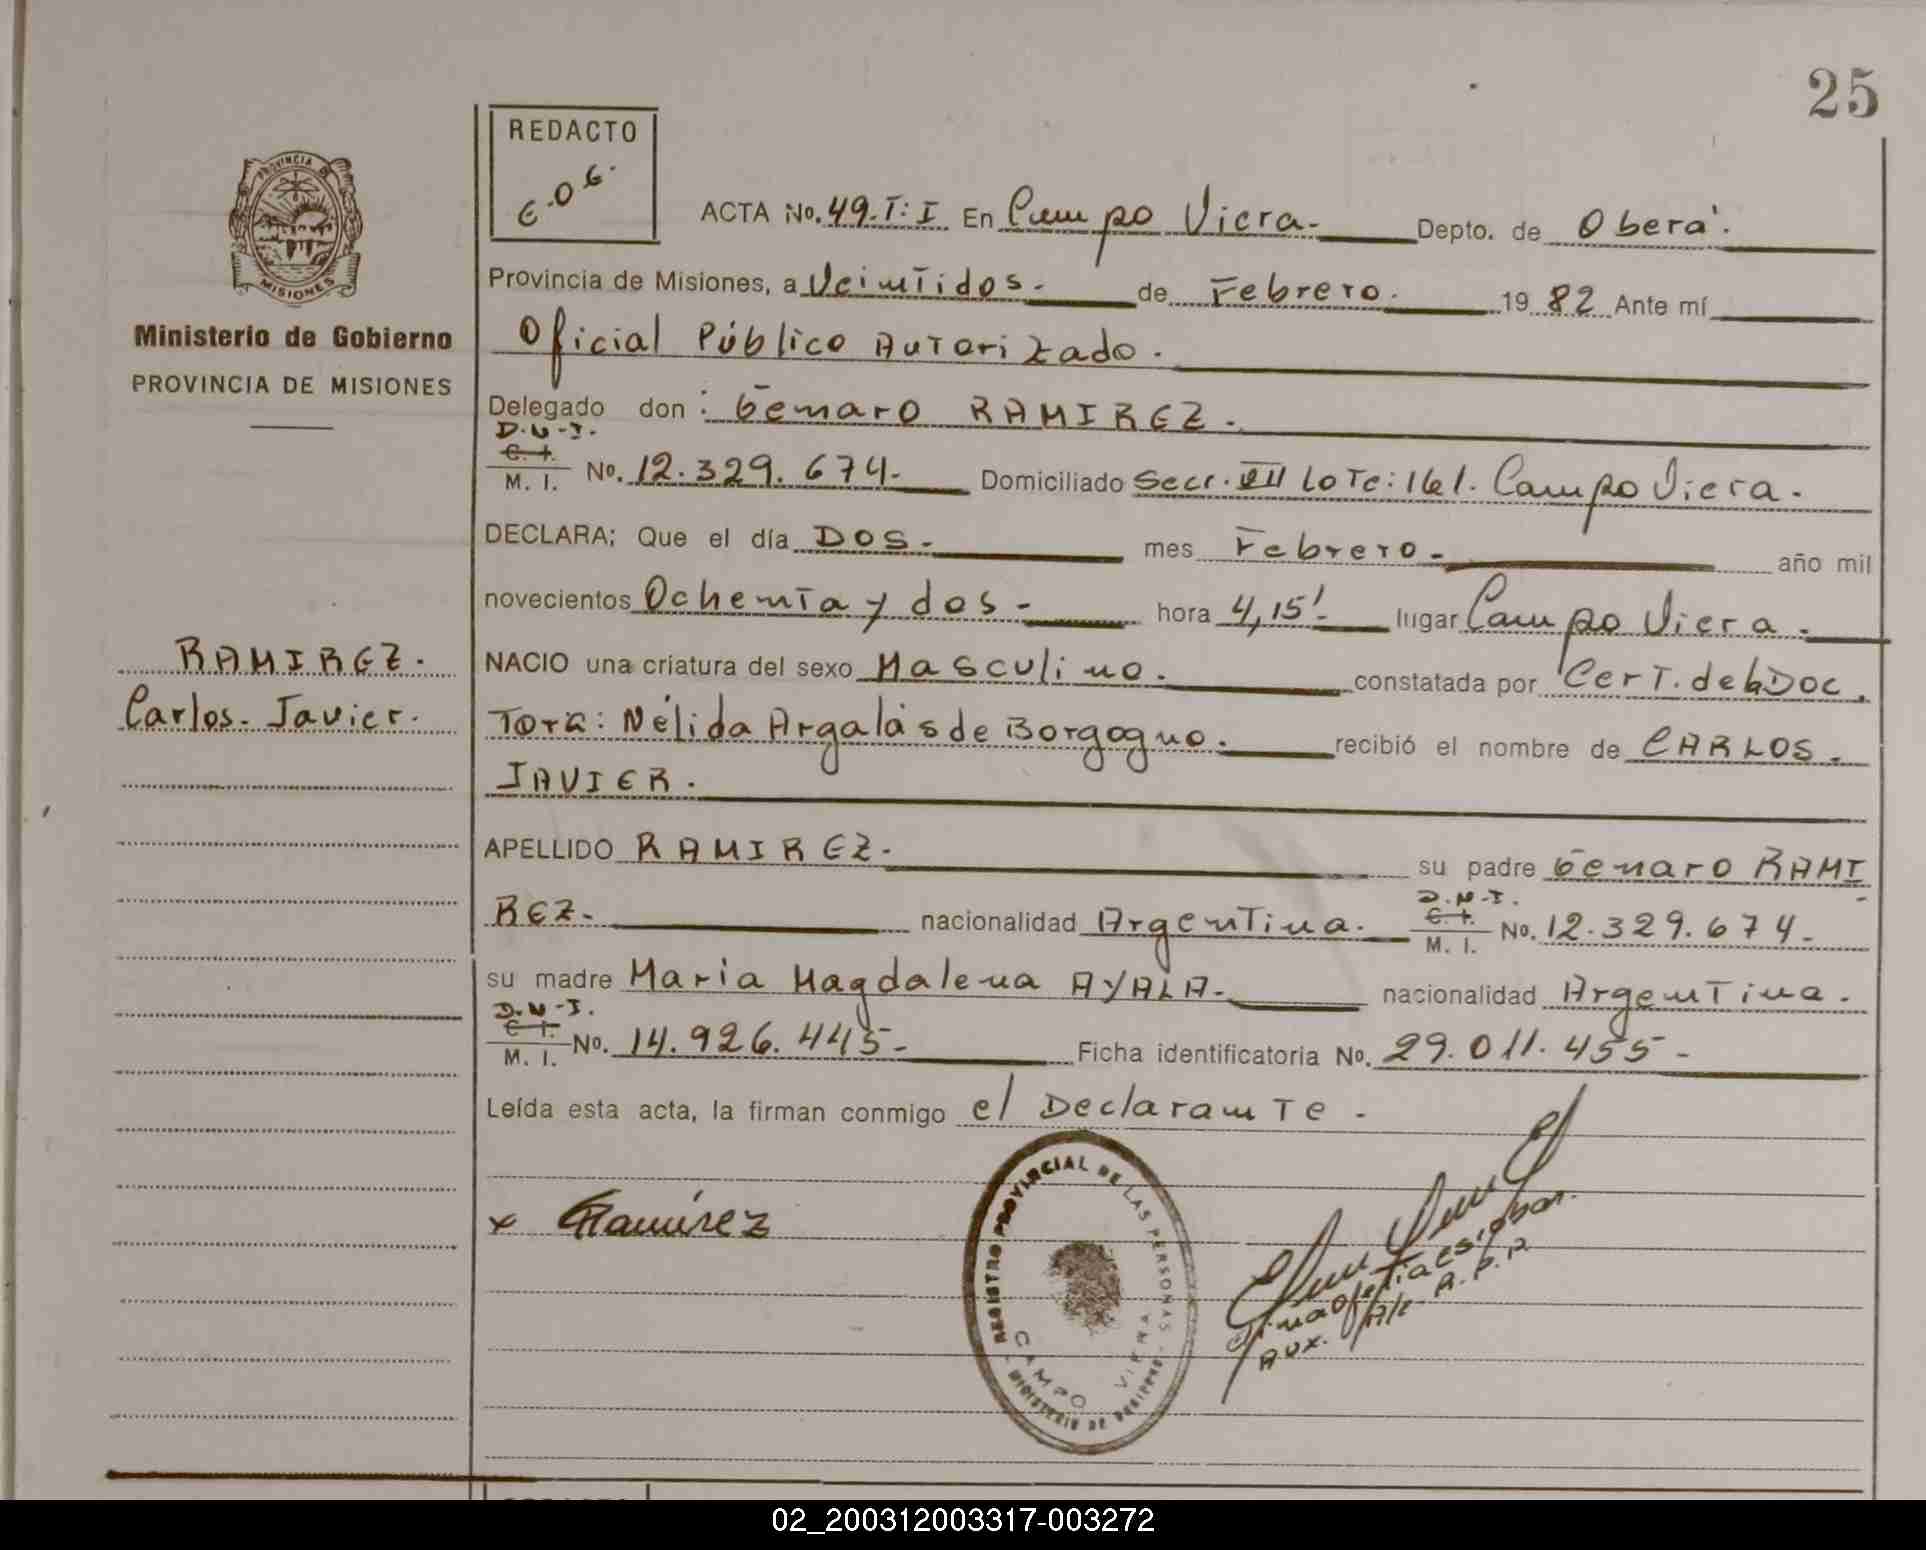 25
REDACTO
E.O.G.
ACTA No. 49.T:I En Campo Viera.- Depto. de Oberá.
Provincia de Misiones, a Veintidos.- de Febrero. 19 82 Ante mí
Oficial Público Autorizado.
Delegado don: Genaro RAMIREZ.
D.N-I.
C. I.
M. I. No. 12.329.674.- Domiciliado Secc. VII Lote: 161. Campo Viera.
DECLARA; Que el día DOS.- mes Febrero.- año mil
novecientos Ochenta y dos.- hora 4,15'.- lugar Campo Viera.
NACIO una criatura del sexo Masculino. constatada por Cert. de la Doc.
Tora: Nélida Argalás de Borgogno. recibió el nombre de CARLOS.
JAVIER.
APELLIDO RAMIREZ.- su padre Genaro RAMI
REZ.- nacionalidad Argentina. D.N-I. C. I. M. I. No. 12.329.674.-
su madre Maria Magdalena AYALA.- nacionalidad Argentina.
D.N-I.
C. I.
M. I. No. 14.926.445- Ficha identificatoria No. 29.011.455-
Leída esta acta, la firman conmigo el Declarante.
x GRamírez
PROVINCIA DE
MISIONES
Ministerio de Gobierno
PROVINCIA DE MISIONES
RAMIREZ.
Carlos. Javier.
REGISTRO PROVINCIAL DE LAS PERSONAS
CAMPO VIERA
MINISTERIO DE GOBIERNO
Aux. A/c R.P.P.
02_200312003317-003272